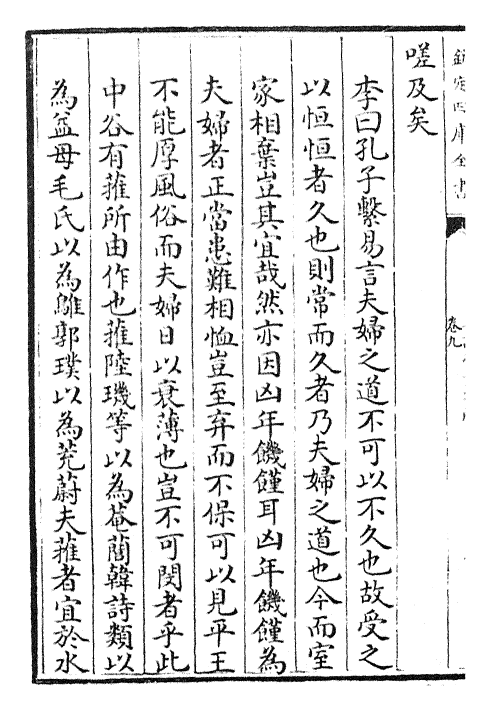 欽定四庫全書
卷九
嗟及矣
李曰孔子繫易言夫婦之道不可以不久也故受之
以恒恒者久也則常而久者乃夫婦之道也今而室
家相棄豈其宜哉然亦因凶年饑饉耳凶年饑饉為
夫婦者正當患難相恤豈至弃而不保可以見平王
不能厚風俗而夫婦日以衰薄也豈不可閔者乎此
中谷有蓷所由作也蓷陸璣等以為菴䕡韓詩類以
為益母毛氏以為鵻郭璞以為茺蔚夫蓷者宜於水